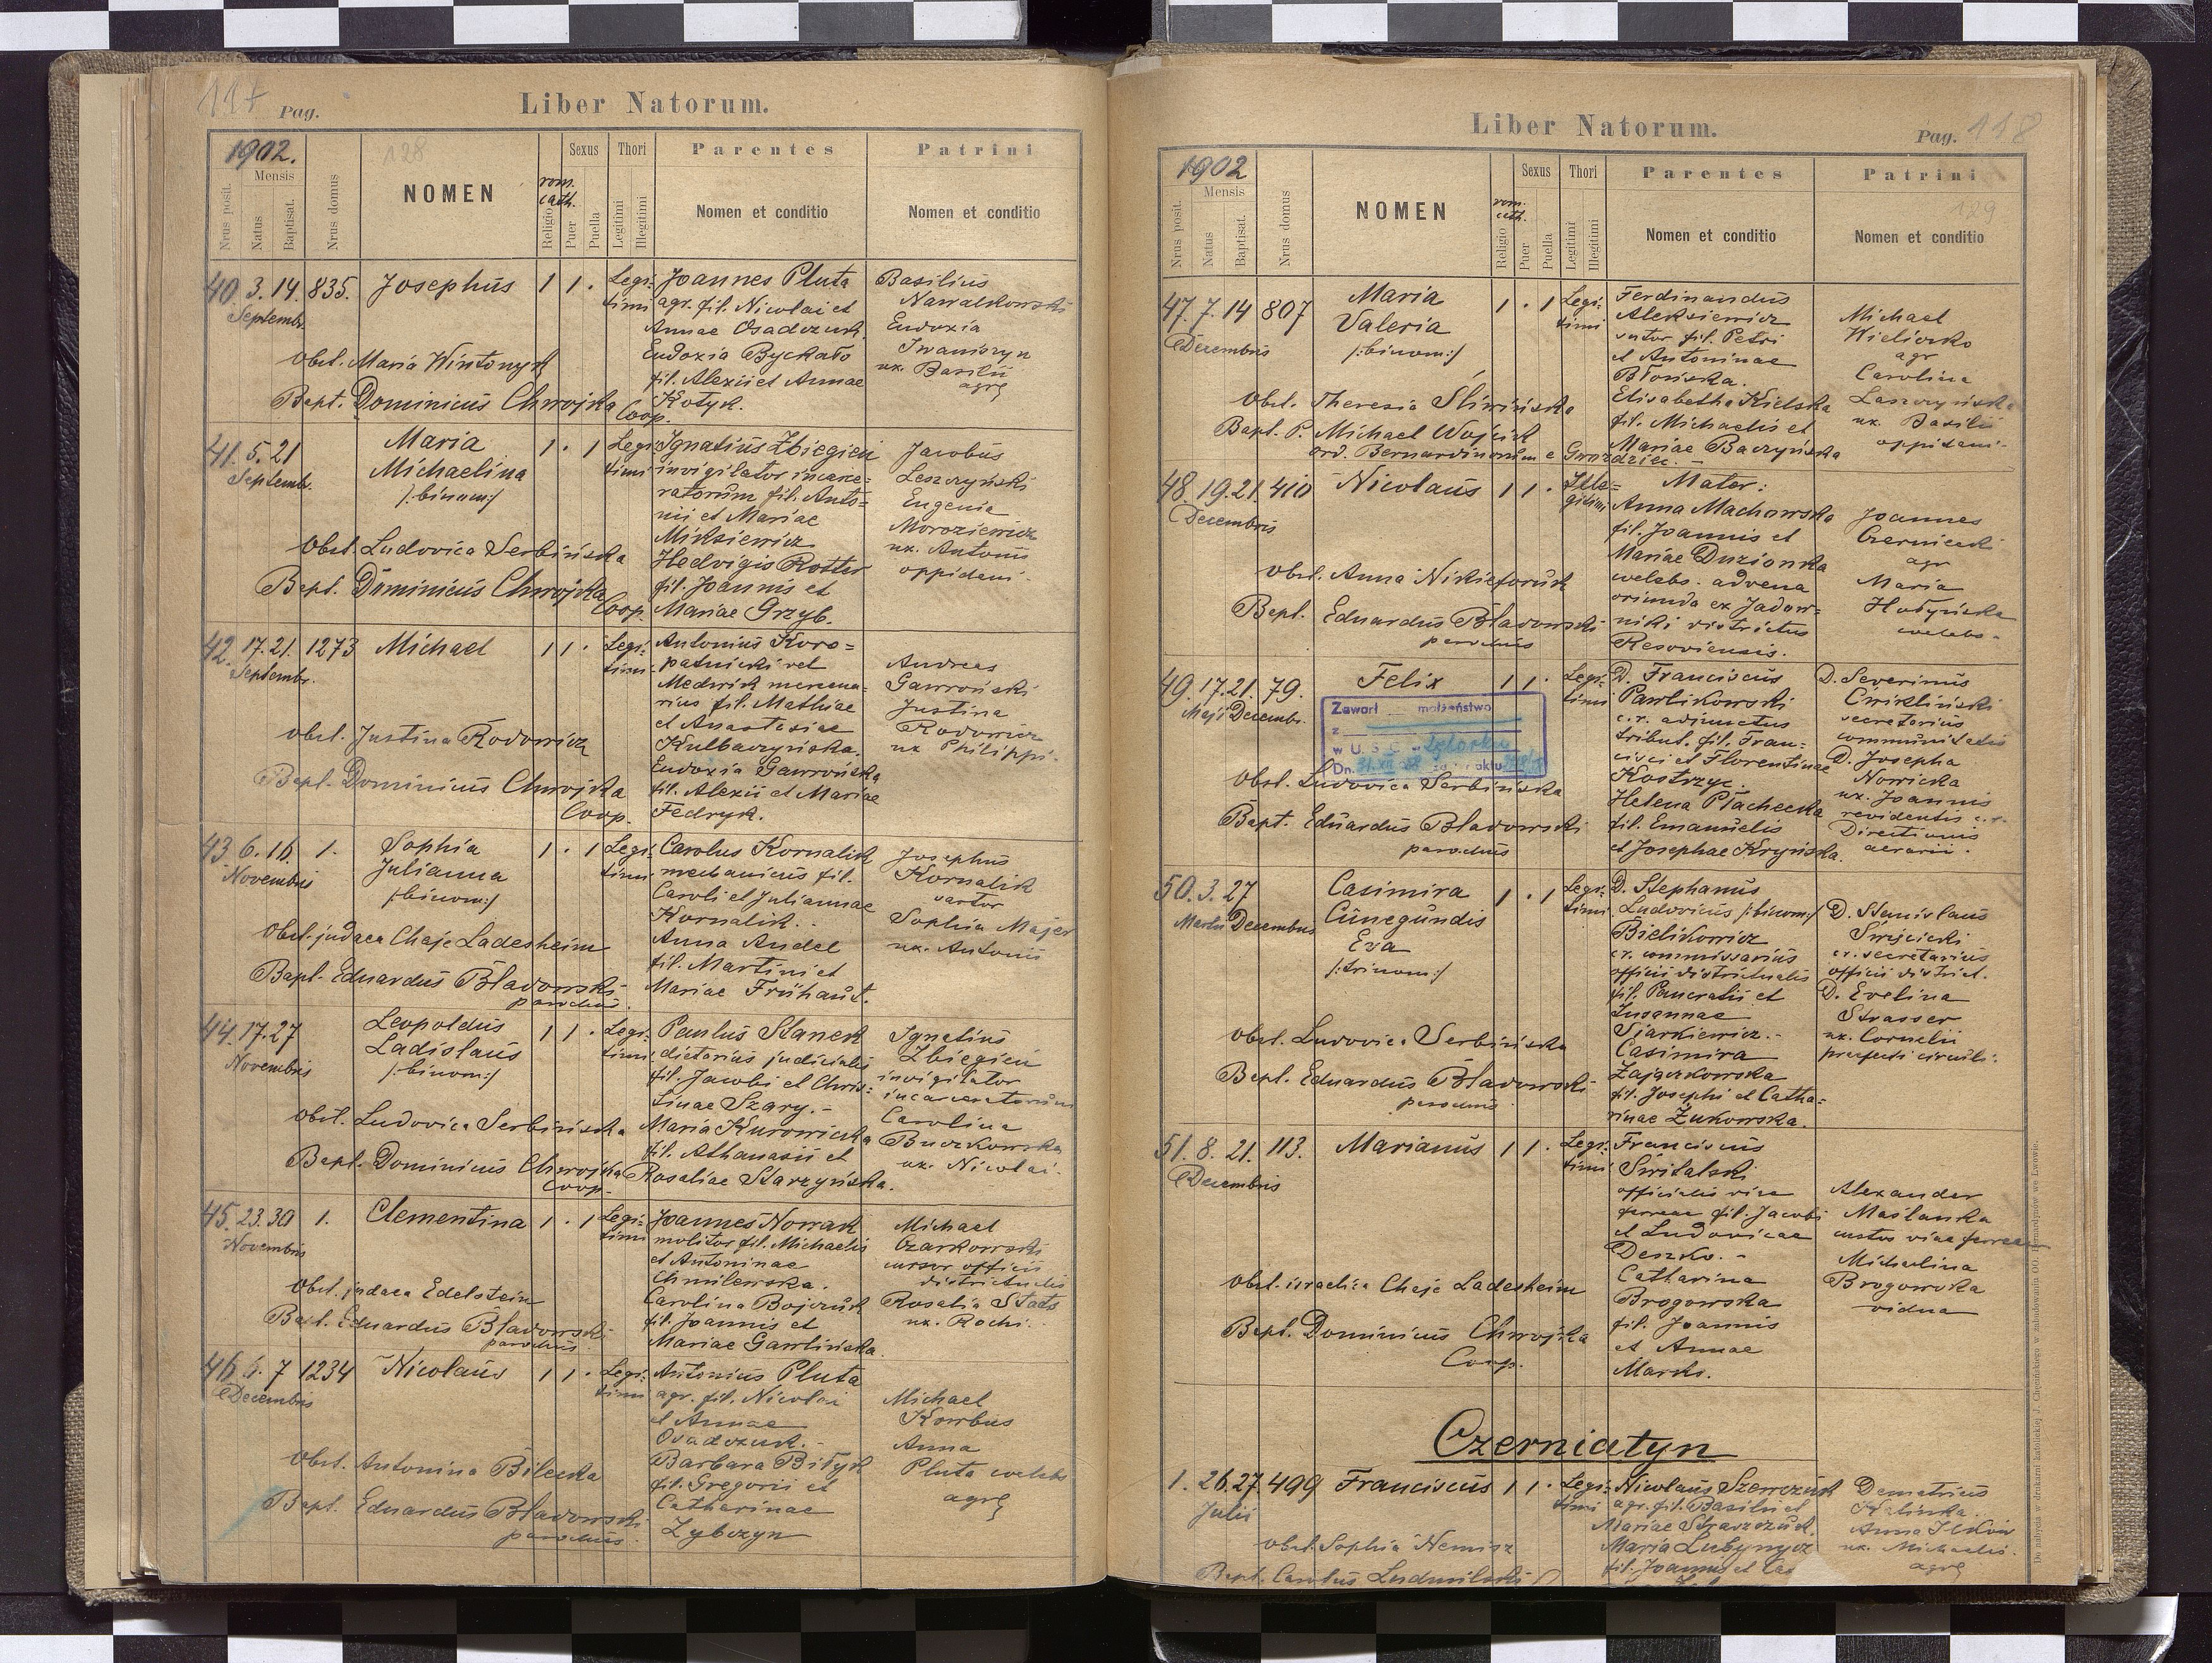 117 Pag. Liber Natorum.
1902. 128
Mensis
Nrus posit. Natus Baptisat. Nrus domus NOMEN rom. cath. Religio Sexus Puer Puella Thori Legitimi Illegitimi Parentes Nomen et conditio Patrini Nomen et conditio
40. 3. 14. 835. Josephus 1 1 . Legi- Joannes Pluta Basilius
Septembr. timi agr. fil. Nicolai et
Annae Osadczuk Eudoxia
Eudoxia Iwaniszyn
obst. Maria Wintonyk fil. Alexii et Annae ux. Basilii
agr.
Bapt. Dominicus Chwojka Coop. Kotyk.
41. 5. 21 Maria 1 . 1 Legi- Ignatius Zbiegień Jacobus
Septembr. Michaelina timi invigilator incarce- Leszczyński
/:binom:/ ratorum fil. Anto- Eugenia
nii et Mariae Moroziewicz
Miksiewicz ux. Antonii
obst. Ludovica Serbińska Hedvigis Rotter oppidani.
fil. Joannis et
Bapt. Dominicus Chwojka Coop. Mariae Grzyb.
42. 17. 21. 1273 Michael 1 1 . Legi- Antonius Koro-
Septembr. timi patnicki vel Andreas
Medwich mercena- Gawroński
rius fil. Mathiae Justina
et Anastasiae Rodowicz
obst. Justina Rodowicz Kulbaczyńska. ux Philippi.
Eudoxia Gawrońska
Bapt. Dominicus Chwojka fil. Alexii et Mariae
Coop. Fedryk.
43. 6. 16. 1. Sophia 1 . 1 Legi- Carolus Kornalik Josephus
Novembris Julianna timi mechanicus fil. Kornalik
/:binom:/ Caroli et Juliannae sartor
Kornalik. Sophia Majer
obst. judaea Chaje Ladesheim Anna Andel ux. Antonii
fil. Martini et
Bapt. Eduardus Bladowski Mariae Frühauf.
parochus.
44. 17. 27 Leopoldus 1 1 . Legi- Paulus Stanek Ignatius
Novembris Ladislaus timi dietarius judicialis Zbiegień
/:binom:/ fil. Jacobi et Chris- invigilator
tinae Szary.- incarceratorum
obst. Ludovica Serbińska Maria Kurowicka Carolina
fil. Athanasii et Buczkowska
Bapt. Dominicus Chwojka Rosaliae Starzyńska. ux. Nicolai.
Coop.
45. 23. 30 1. Clementina 1 . 1 Legi- Joannes Nowak Michael
Novembris timi molitor fil. Michaelis Czarkowski
et Antoninae cursor officii
Chmilewska. districtualis
obst. judaea Edelstein Carolina Bojczuk Rosalia Stats
fil. Joannis et ux. Rochi.
Bapt. Eduardus Bladowski Mariae Gawlińska.
parochus
46. 6. 7 1234 Nicolaus 1 1 . Legi- Antonius Pluta
Decembris timi agr. fil. Nicolai Michael
et Annae Korbus
Osadczuk.- Anna
obst. Antonina Bilecka Barbara Biłyk Pluta coelebs
fil. Gregorii et agr.
Bapt. Eduardus Bladowski Catharinae
parochus. Zybczyn
Liber Natorum. Pag. 118
1902 129
Mensis
Nrus posit. Natus Baptisat. Nrus domus NOMEN rom. cath. Religio Sexus Puer Puella Thori Legitimi Illegitimi Parentes Nomen et conditio Patrini Nomen et conditio
47. 7. 14 807 Maria 1 . 1 Legi- Ferdinandus
Decembris Valeria timi Aleksiewicz Michael
/:binom:/ sutor fil. Petri
et Antoninae agr
Błońska. Carolina
obst. Theresia Śliwińska Elisabetha Kielska Leszczyńska
fil. Michaelis et ux. Basilii
Bapt. P. Michael Wojcik Mariae Baczyńska oppidani.
ord. Bernardinorum e Gwozdziec.-
48. 19. 21. 410 Nicolaus 1 1 . Ille- Mater:
Decembris gitimi Anna Machowska Joannes
fil. Joannis et Czerniecki
Mariae Duzionka agr
obst. Anna Nikieforuk coelebs. advena Maria
oriunda ex Jadow-
Bapt. Eduardus Bladowski niki districtus coelebs.
parochus Resoviensis.
49. 17. 21. 79. Felix 1 1 . Legi- D. Franciscus D. Severinus
Maji Decembr. timi Pawlikowski Cwikliński
Zawarł małżeństwo c.r. adjunctus secretarius
z tribut. fil. Fran- communitatis
w U. S. C. cisci et Florentinae D. Josepha
Dn. aktu Kostrzyc. Nowicka
obst. Ludovica Serbińska Helena Płachecka ux. Joannis
fil. Emanuelis revidentis c.r.
Bapt. Eduardus Bladowski et Josephae Kryńska. Directionis
parochus aerarii.
50. 3. 27 Casimira 1 . 1 Legi- D. Stephanus
Martii Decembris Cunegundis timi Ludovicus /:binom:/ D. Stanislaus
Eva Bielikowicz Święcicki
/:trinom:/ cr. commissarius cr. secretarius
officii districtualis officii district.
fil. Pancratii et D. Evelina
Susannae Strasser
obst. Ludovica Serbińska Siarkiewicz.- ux. Cornelii
Casimira praefecti circuli.
Bapt. Eduardus Bladowski Zajączkowska
parochus fil. Josephi et Catha-
rinae Żukowska.
51. 8. 21. 113. Marianus 1 1 . Legi- Franciscus
Decembris timi Świtalski
officialis viae Alexander
ferreae fil. Jacobi Maślanka
et Ludovicae custos viae ferreae
Deszko.- Michalina
obst. israelica Chaje Ladesheim Catharina Brogowska
Brogowska vidua
Bapt. Dominicus Chwojka fil. Joannis
Coop. et Annae
Marko.
Czerniatyn
1. 26. 27. 499 Franciscus 1 1 . Legi- Nicolaus Szewczuk Demetrius
Julii timi agr. fil. Basilii et Kalinka.
Mariae Anna Ilków
obst. Sophia Nemisz Maria ux. Michaelis.
Bapt. Carolus fil. Joannis et agr.
Do nabycia w drukarni katolickiej J. Chęcińskiego w zabudowaniu OO. Bernardynów we Lwowie.